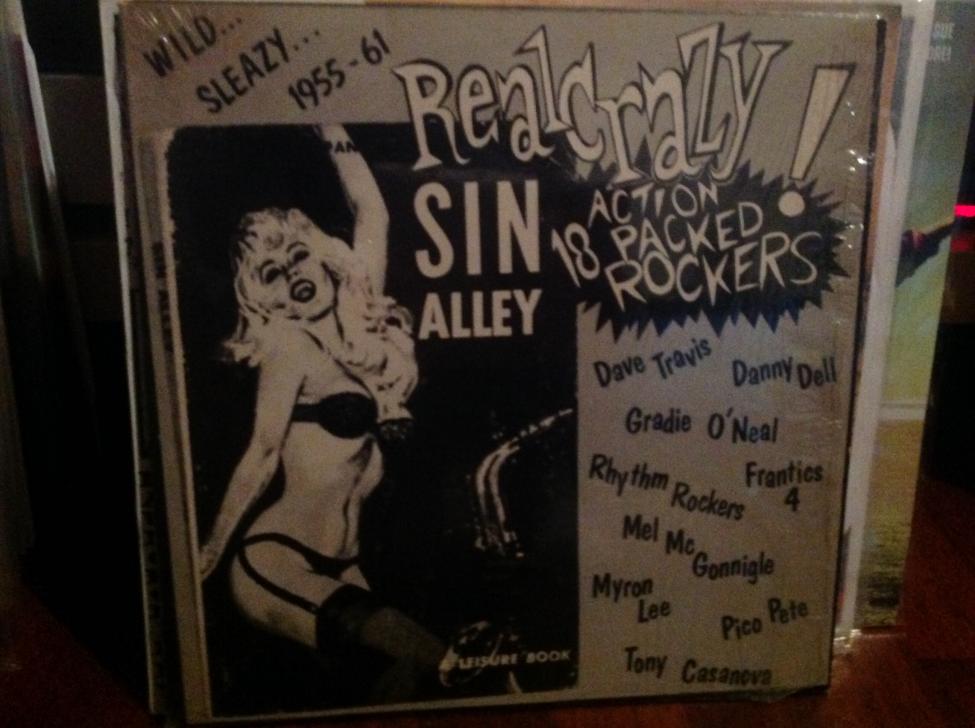 WILD...
SLEAZY...
1955-61
Real Crazy!
SIN
ALLEY
18 ACTION
PACKED
ROCKERS
Dave Travis
Danny Dell
Gradie O'Neal
Rhythm Rockers
Frantics
4
Mel McGonnigle
Myron
Lee
Pico Pete
Tony Casanova
A LEISURE BOOK